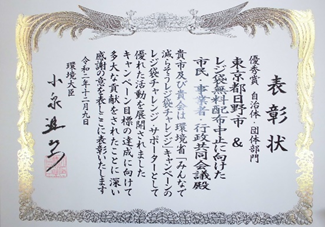 表彰状
優秀賞 自治体・団体部門
東京都日野市 &
レジ袋無料配布中止に向けた
市民、事業者、行政共同会議殿
貴市及び貴会は環境省「みんなで
減らそうレジ袋チャレンジ」キャンペーンの
レジ袋チャレンジサポーターとして
優れた活動を展開されました
キャンペーン目標の達成に向けて
多大な貢献をされたことに深い
感謝の意を表しここに表彰いたします
令和二年十二月九日
環境大臣
小泉進次郎